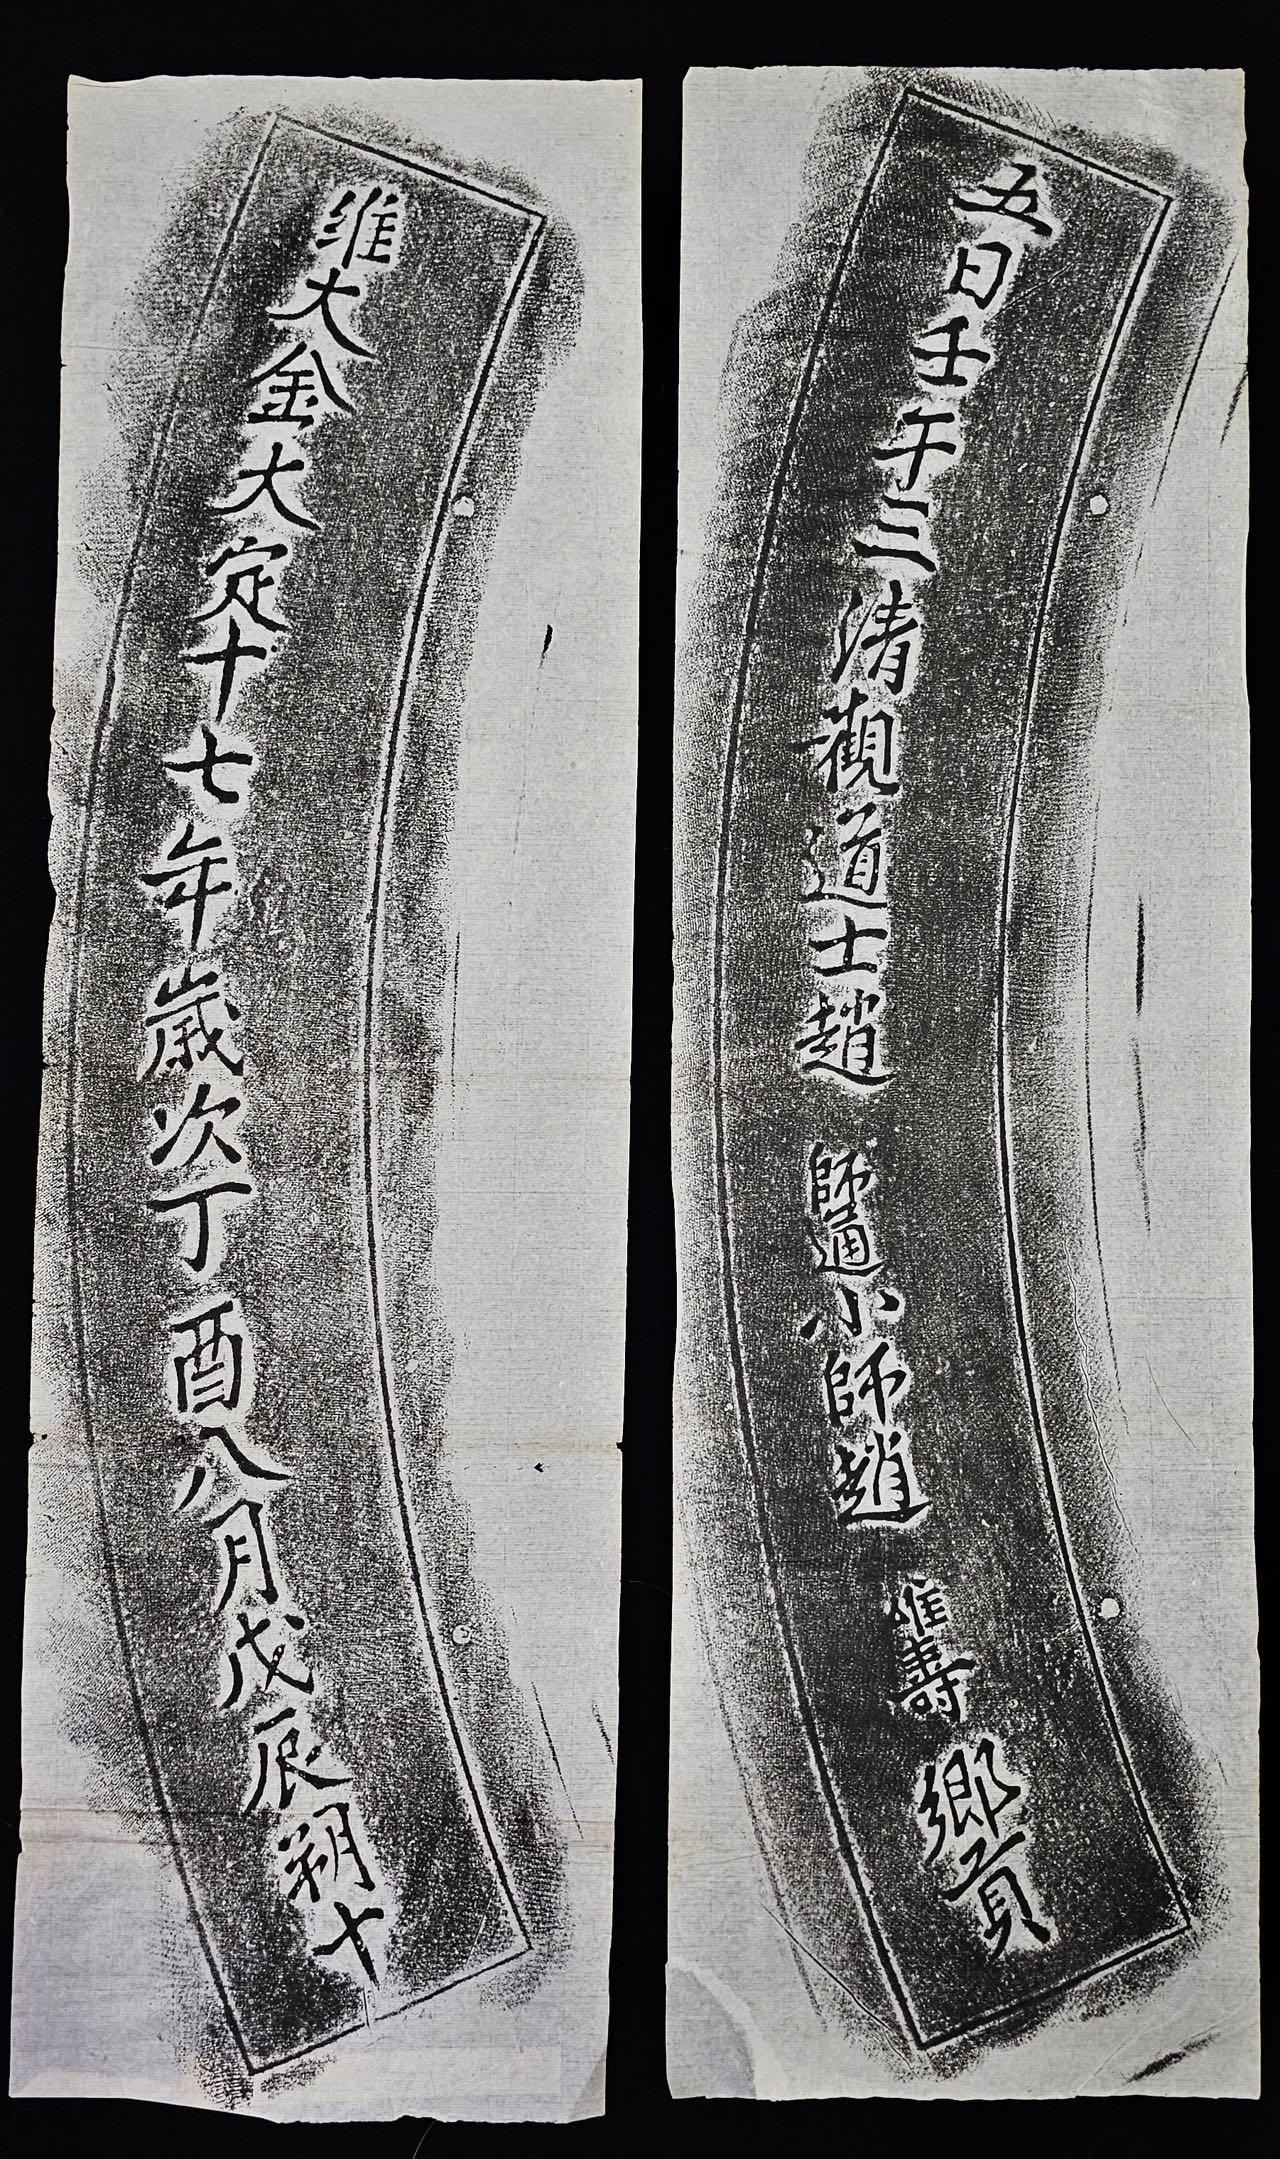 维大金大定十七年歲次丁酉八月戊辰朔十
五日壬午三清觀道士趙師通小師趙維壽鄉貢